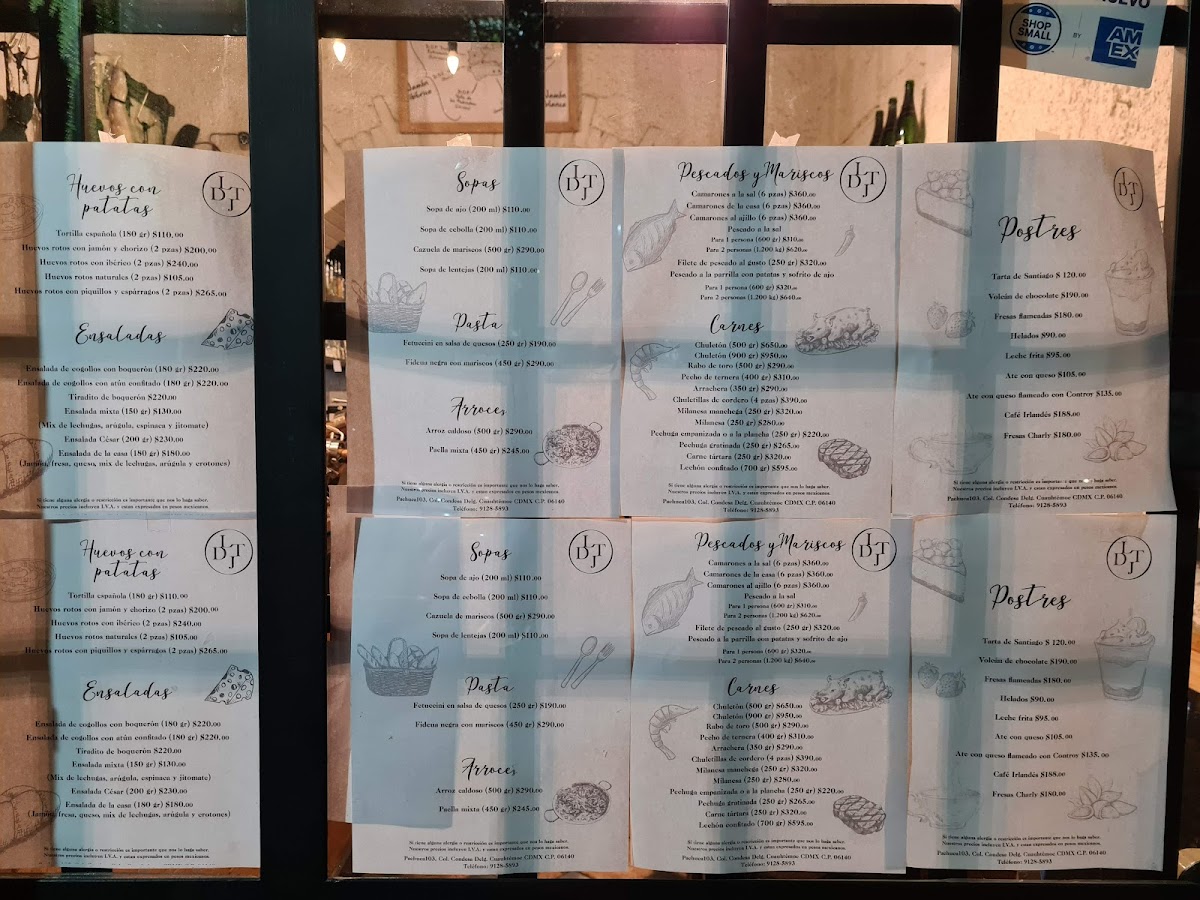 NUEVO
SHOP
SMALL
BY
AM
EX
Huevos con
patatas
Tortilla española (180 gr) $110.00
Huevos rotos con jamón y chorizo (2 pzas) $200.00
Huevos rotos con ibérico (2 pzas) $240.00
Huevos rotos naturales (2 pzas) $105.00
Huevos rotos con piquillos y espárragos (2 pzas) $265.00
Ensaladas
Ensalada de cogollos con boquerón (180 gr) $220.00
Ensalada de cogollos con atún confitado (180 gr) $220.00
Tiradito de boquerón $220.00
Ensalada mixta (150 gr) $130.00
(Mix de lechugas, arúgula, espinaca y jitomate)
Ensalada César (200 gr) $230.00
Ensalada de la casa (180 gr) $180.00
(Jamón, fresa, queso, mix de lechugas, arúgula y crotones)
Si tiene alguna alergia o restricción es importante que nos lo haga saber.
Nuestros precios incluyen I.V.A. y estan expresados en pesos mexicanos.
Sopas
Sopa de ajo (200 ml) $110.00
Sopa de cebolla (200 ml) $110.00
Cazuela de mariscos (500 gr) $290.00
Sopa de lentejas (200 ml) $110.00
Pasta
Fetuccini en salsa de quesos (250 gr) $190.00
Fideua negra con mariscos (450 gr) $290.00
Arroces
Arroz caldoso (500 gr) $290.00
Paella mixta (450 gr) $245.00
Pescados y Mariscos
Camarones a la sal (6 pzas) $360.00
Camarones de la casa (6 pzas) $360.00
Camarones al ajillo (6 pzas) $360.00
Pescado a la sal
Para 1 persona (600 gr) $310.00
Para 2 personas (1.200 kg) $620.00
Filete de pescado al gusto (250 gr) $320.00
Pescado a la parrilla con patatas y sofrito de ajo
Para 1 persona (600 gr) $320.00
Para 2 personas (1.200 kg) $640.00
Carnes
Chuletón (500 gr) $650.00
Chuletón (900 gr) $950.00
Rabo de toro (500 gr) $290.00
Pecho de ternera (400 gr) $310.00
Arrachera (350 gr) $290.00
Chuletillas de cordero (4 pzas) $390.00
Milanesa manchega (250 gr) $320.00
Milanesa (250 gr) $280.00
Pechuga empanizada o a la plancha (250 gr) $220.00
Pechuga gratinada (250 gr) $265.00
Carne tártara (250 gr) $320.00
Lechón confitado (700 gr) $595.00
Si tiene alguna alergia o restricción es importante que nos lo haga saber.
Nuestros precios incluyen I.V.A. y estan expresados en pesos mexicanos.
Pachuca103, Col. Condesa Delg. Cuauhtémoc CDMX C.P. 06140
Teléfono: 9128-5893
Postres
Tarta de Santiago $ 120.00
Volcán de chocolate $190.00
Fresas flameadas $180.00
Helados $90.00
Leche frita $95.00
Ate con queso $105.00
Ate con queso flameado con Controy $135.00
Café Irlandés $188.00
Fresas Charly $180.00
Si tiene alguna alergia o restricción es importante que nos lo haga saber.
Nuestros precios incluyen I.V.A. y estan expresados en pesos mexicanos.
Pachuca103, Col. Condesa Delg. Cuauhtémoc CDMX C.P. 06140
Teléfono: 9128-5893
Huevos con
patatas
Tortilla española (180 gr) $110.00
Huevos rotos con jamón y chorizo (2 pzas) $200.00
Huevos rotos con ibérico (2 pzas) $240.00
Huevos rotos naturales (2 pzas) $105.00
Huevos rotos con piquillos y espárragos (2 pzas) $265.00
Ensaladas
Ensalada de cogollos con boquerón (180 gr) $220.00
Ensalada de cogollos con atún confitado (180 gr) $220.00
Tiradito de boquerón $220.00
Ensalada mixta (150 gr) $130.00
(Mix de lechugas, arúgula, espinaca y jitomate)
Ensalada César (200 gr) $230.00
Ensalada de la casa (180 gr) $180.00
(Jamón, fresa, queso, mix de lechugas, arúgula y crotones)
Si tiene alguna alergia o restricción es importante que nos lo haga saber.
Nuestros precios incluyen I.V.A. y estan expresados en pesos mexicanos.
Sopas
Sopa de ajo (200 ml) $110.00
Sopa de cebolla (200 ml) $110.00
Cazuela de mariscos (500 gr) $290.00
Sopa de lentejas (200 ml) $110.00
Pasta
Fetuccini en salsa de quesos (250 gr) $190.00
Fideua negra con mariscos (450 gr) $290.00
Arroces
Arroz caldoso (500 gr) $290.00
Paella mixta (450 gr) $245.00
Pescados y Mariscos
Camarones a la sal (6 pzas) $360.00
Camarones de la casa (6 pzas) $360.00
Camarones al ajillo (6 pzas) $360.00
Pescado a la sal
Para 1 persona (600 gr) $310.00
Para 2 personas (1.200 kg) $620.00
Filete de pescado al gusto (250 gr) $320.00
Pescado a la parrilla con patatas y sofrito de ajo
Para 1 persona (600 gr) $320.00
Para 2 personas (1.200 kg) $640.00
Carnes
Chuletón (500 gr) $650.00
Chuletón (900 gr) $950.00
Rabo de toro (500 gr) $290.00
Pecho de ternera (400 gr) $310.00
Arrachera (350 gr) $290.00
Chuletillas de cordero (4 pzas) $390.00
Milanesa manchega (250 gr) $320.00
Milanesa (250 gr) $280.00
Pechuga empanizada o a la plancha (250 gr) $220.00
Pechuga gratinada (250 gr) $265.00
Carne tártara (250 gr) $320.00
Lechón confitado (700 gr) $595.00
Si tiene alguna alergia o restricción es importante que nos lo haga saber.
Nuestros precios incluyen I.V.A. y estan expresados en pesos mexicanos.
Pachuca103, Col. Condesa Delg. Cuauhtémoc CDMX C.P. 06140
Teléfono: 9128-5893
Postres
Tarta de Santiago $ 120.00
Volcán de chocolate $190.00
Fresas flameadas $180.00
Helados $90.00
Leche frita $95.00
Ate con queso $105.00
Ate con queso flameado con Controy $135.00
Café Irlandés $188.00
Fresas Charly $180.00
Si tiene alguna alergia o restricción es importante que nos lo haga saber.
Nuestros precios incluyen I.V.A. y estan expresados en pesos mexicanos.
Pachuca103, Col. Condesa Delg. Cuauhtémoc CDMX C.P. 06140
Teléfono: 9128-5893